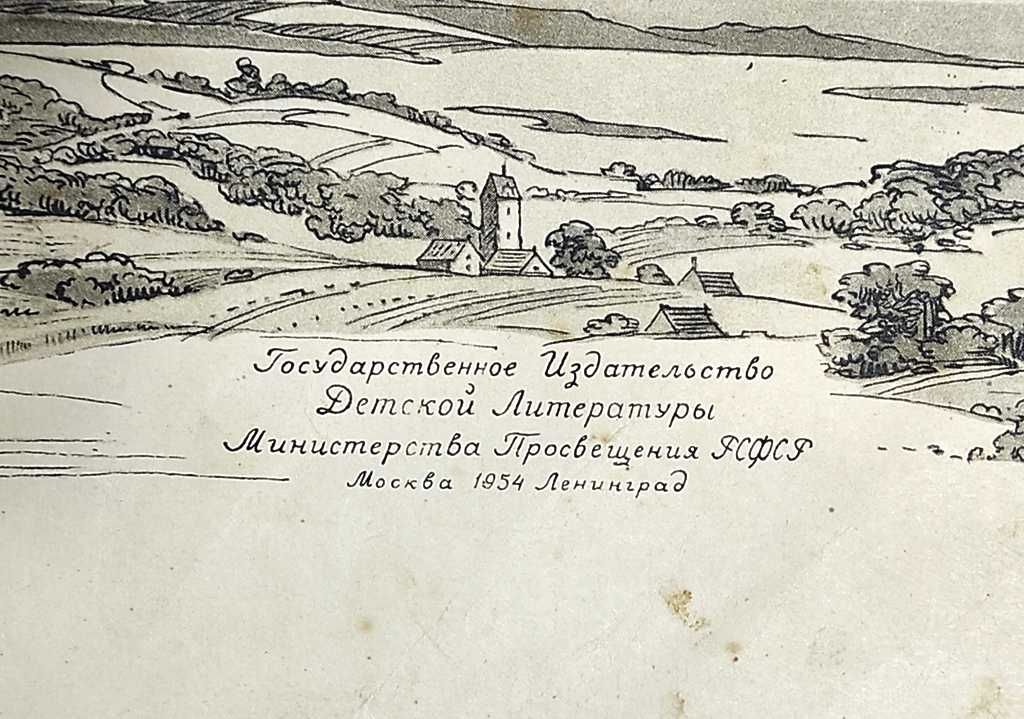 Государственное Издательство
Детской Литературы
Министерства Просвещения РСФСР
Москва 1954 Ленинград